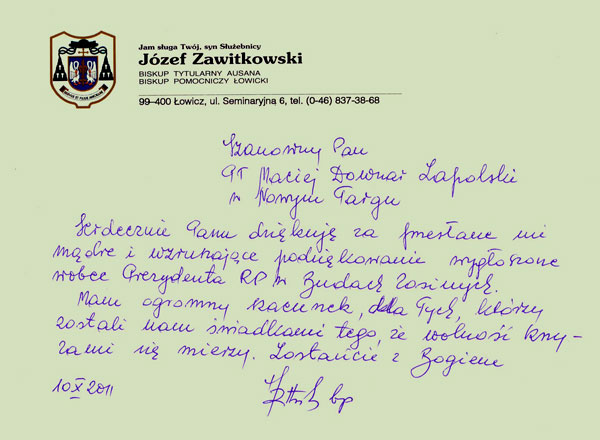 Jam sługa Twój, syn Służebnicy
Józef Zawitkowski
BISKUP TYTULARNY AUSANA
BISKUP POMOCNICZY ŁOWICKI
99-400 Łowicz, ul. Seminaryjna 6, tel. (0-46) 837-38-68
Szanowny Pan
Maciej Downar Zapolski
w Nowym Targu
Serdecznie Panu dziękuję za przesłane mi
mądre i wzruszające podziękowanie wygłoszone
wobec Prezydenta RP w Budach Zosinych.
Mam ogromny szacunek, dla Tych, którzy
zostali nam świadkami tego, że wolność krzy-
żami się mierzy. Zostańcie z Bogiem
10 X 2011
bp